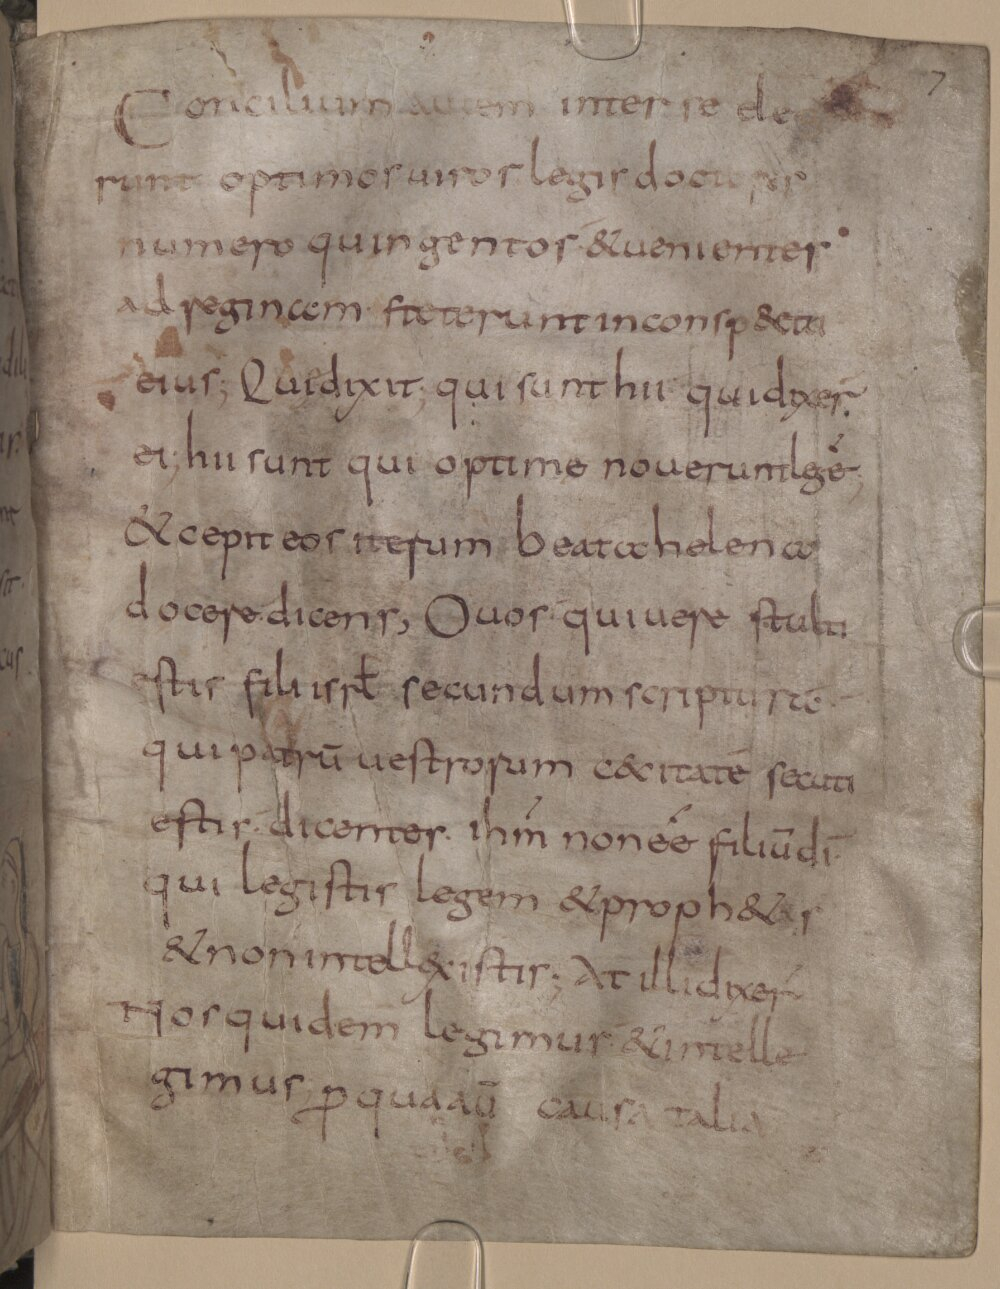 7
Concilium autem inter se de
runt optimos uiros legis doctores
numero quingentos &uenientes
ad reginam steterunt inconsp&ctu
eius; Quidixit; qui sunt hii quidixer̄.
ei; hii sunt qui optime nouerunt lgē;
&cepit eos iterum beata helena
docere dicens, O uos qui uere stulti
estis fili isrl̄ secundum scripturas
qui patrū uestrorum c&citatē secuti
estis. dicentes. ihm̄ non eē filiū dī.
qui legistis legem &proph&as
&non intell&xistis; At illi dixer̄
Nos quidem legimus &intelle
gimus, ꝓ qua aū causa talia